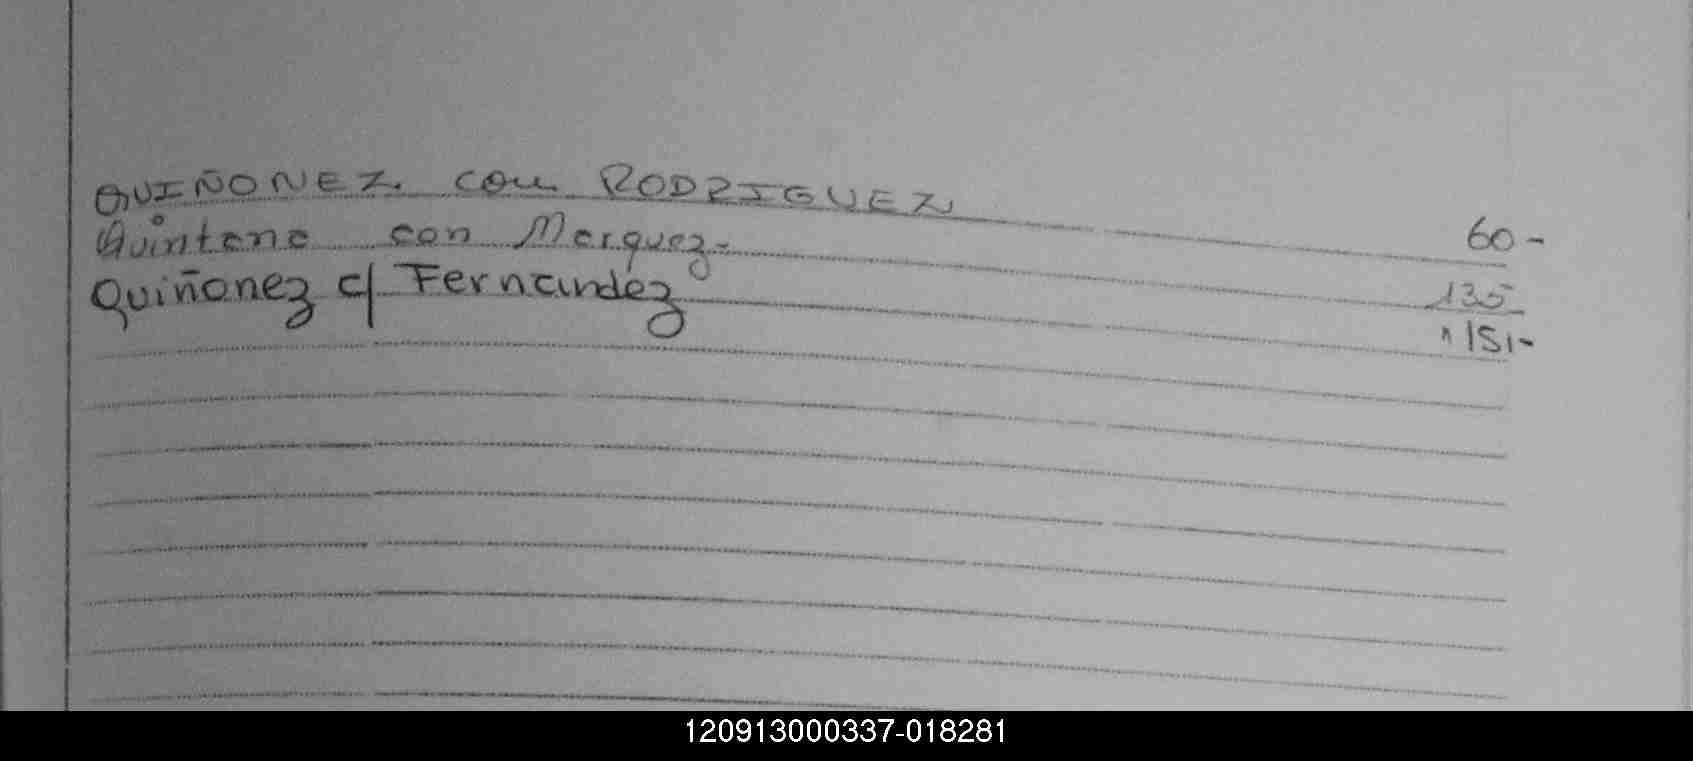 QUIÑONEZ con RODRIGUEZ 60-
Quintana con Marquez- 135
Quiñonez c/ Fernandez " 151-
120913000337-018281